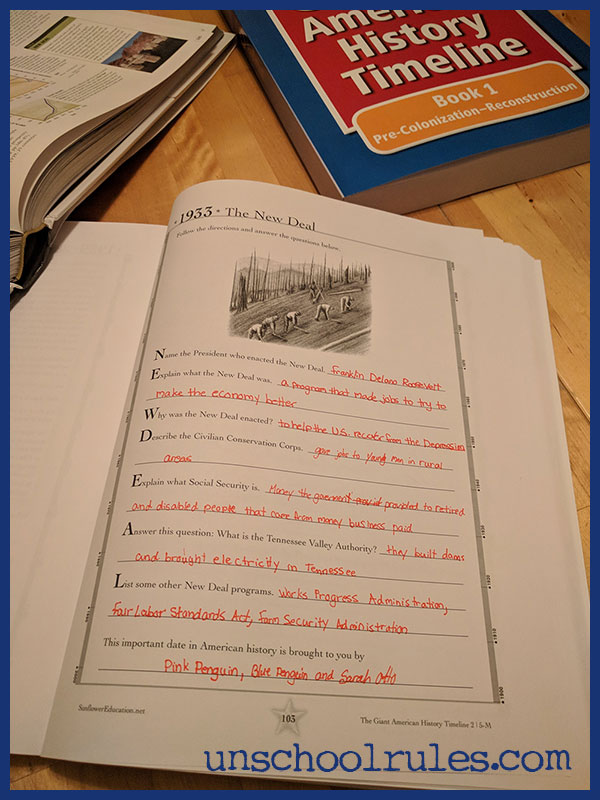 American
History
Timeline
Book 1
Pre-Colonization–Reconstruction
1933 • The New Deal
Follow the directions and answer the questions below.
Name the President who enacted the New Deal. Franklin Delano Roosevelt
Explain what the New Deal was. a program that made jobs to try to
make the economy better
Why was the New Deal enacted? to help the U.S. recover from the Depression
Describe the Civilian Conservation Corps. gave jobs to young men in rural
areas
Explain what Social Security is. Money the goverment provided to retired
and disabled people that came from money business paid
Answer this question: What is the Tennessee Valley Authority? they built dams
and brought electricity in Tennessee
List some other New Deal programs. Works Progress Administration,
Fair Labor Standards Act, Farm Security Administration
This important date in American history is brought to you by
Pink Penguin, Blue Penguin and Sarah Otto
SunflowerEducation.net
103
The Giant American History Timeline 2 | 5-M
unschoolrules.com